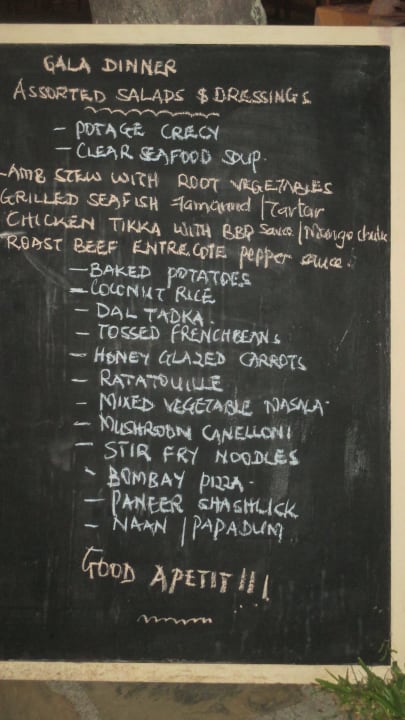 GALA DINNER
ASSORTED SALADS $ DRESSINGS
- POTAGE CRECY
- CLEAR SEAFOOD SOUP.
AMB STEW WITH ROOT VEGETABLES
GRILLED SEAFISH Tamarind / Tartar
CHICKEN TIKKA WITH BBQ Sauce / Mango
ROAST BEEF ENTRE.COTE pepper sauce.
- BAKED POTATOES
- COCONUT RICE
- DAL TADKA.
- TOSSED FRENCHBEANS
- HONEY GLAZED CARROTS
- RATATOUILLE
- MIXED VEGETABLE MASALA
- MUSHROOM CANELLONI
- STIR FRY NOODLES
- BOMBAY PIZZA.
- PANEER SHASHLICK
- NAAN / PAPADUM
GOOD APETIT!!!